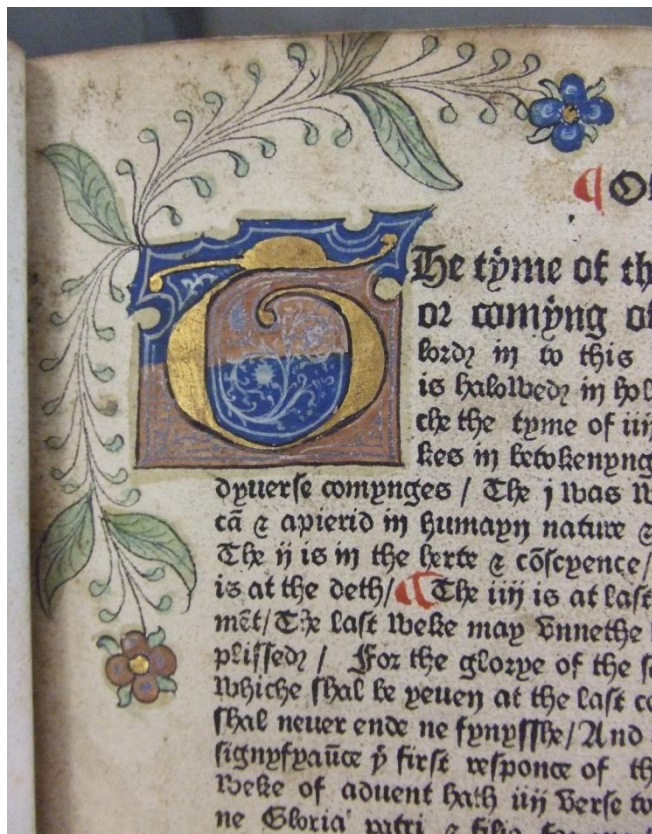 ¶ Of
The tyme of th
or comyng of
lord in to this
is halowed in hol
che the tyme of iiij
kes in betokenyng
dyuerſe comynges / The j was w
cā ⁊ apierid in humayn nature ⁊
The ij is in the herte ⁊ cōſcyence /
is at the deth / ¶ The iiij is at laſt
mēt / The laſt weke may vnnethe
pliſſed / For the glorye of the ſ
whiche ſhal be yeuen at the laſt co
ſhal neuer ende ne fynyſſhe / And
ſignyfyaūce yͤ firſt reſponce of th
weke of aduent hath iiij verſe to
ne Gloria patri ⁊ filio